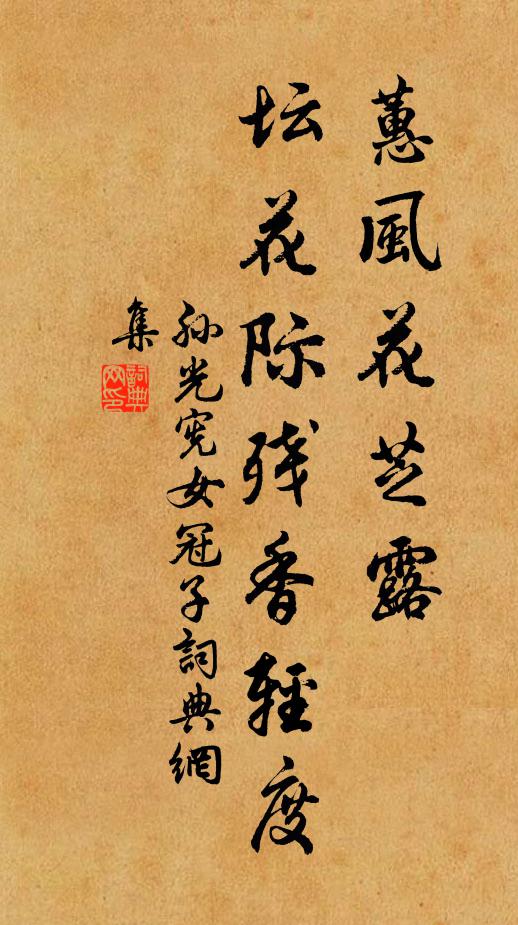 蕙風花芝露
坛花际残香輕度
孙光宪女冠子詞典網
集
詞典網印